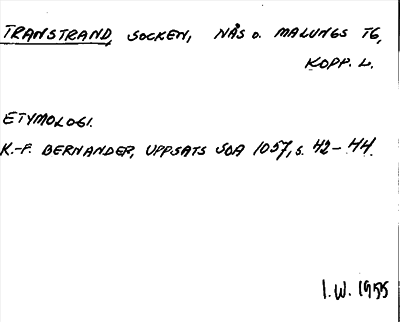 TRANSTRAND SOCKEN, NÅS o. MALUNGS TG,
KOPP. L.
ETYMOLOGI.
K.-P. BERNANDER, UPPSATS SOA 1057, s. 42-44.
I.W. 1955